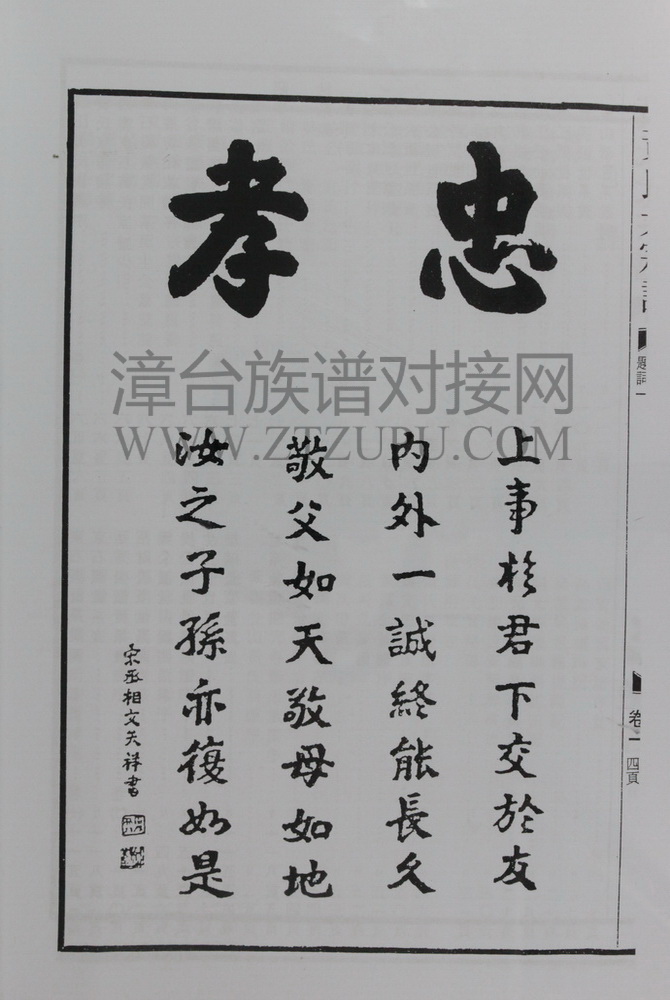 忠孝
上事於君下交於友
内外一誠終能長久
敬父如天敬母如地
汝之子孫亦復如是
宋丞相文天祥書
題詞一
卷一
四頁
漳台族谱对接网
WWW.ZTZUPU.COM